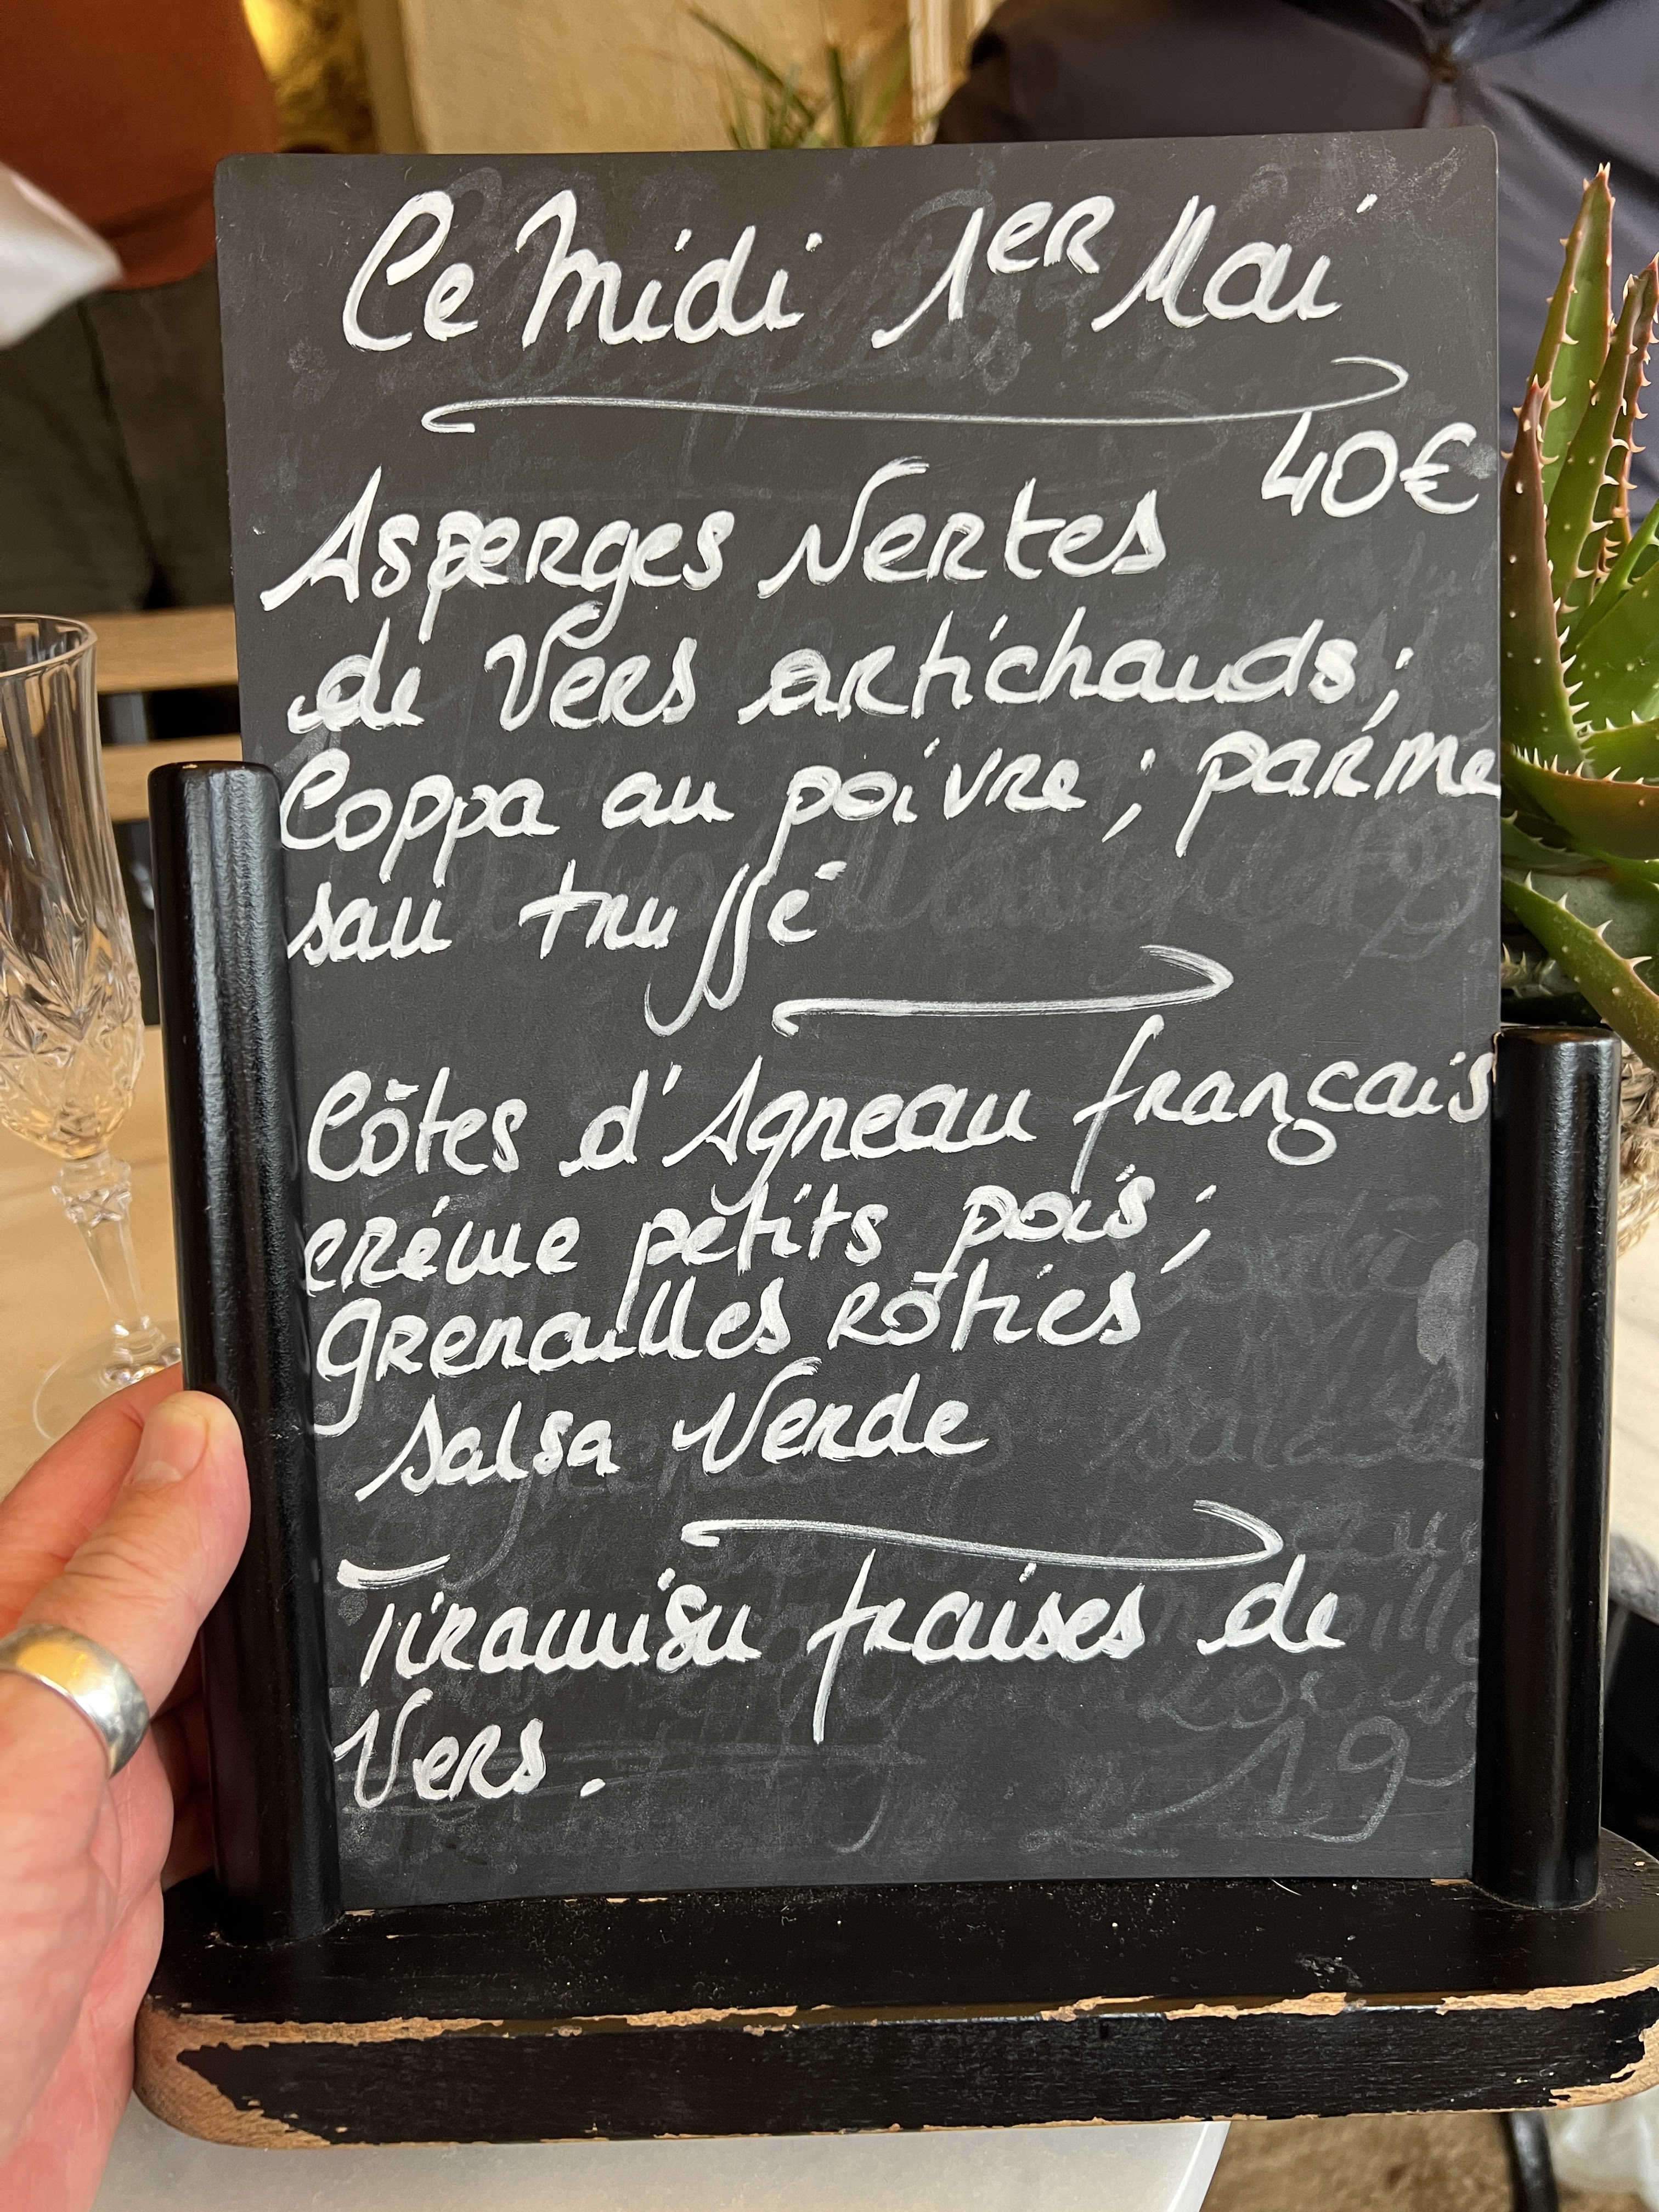 Ce Midi 1ER Mai
40€
Asperges Vertes
de Vers artichauds;
Coppa au poivre; parme
sau truffé
Côtes d'Agneau français
créme petits pois;
Grenailles Rôties
Salsa Verde
Tiramisu fraises de
Vers.
19